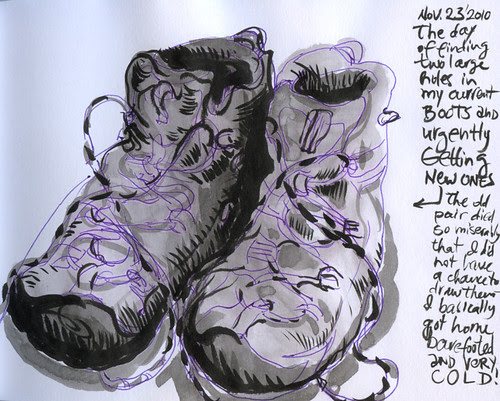 Nov. 23'2010
The day
of finding
two large
holes in
my current
BOOTS and
urgently
Getting
NEW ONES
The old
pair died
so miserably
that I did
not have
a chance to
draw them
I basically
got home
barefooted
AND VERY
COLD!